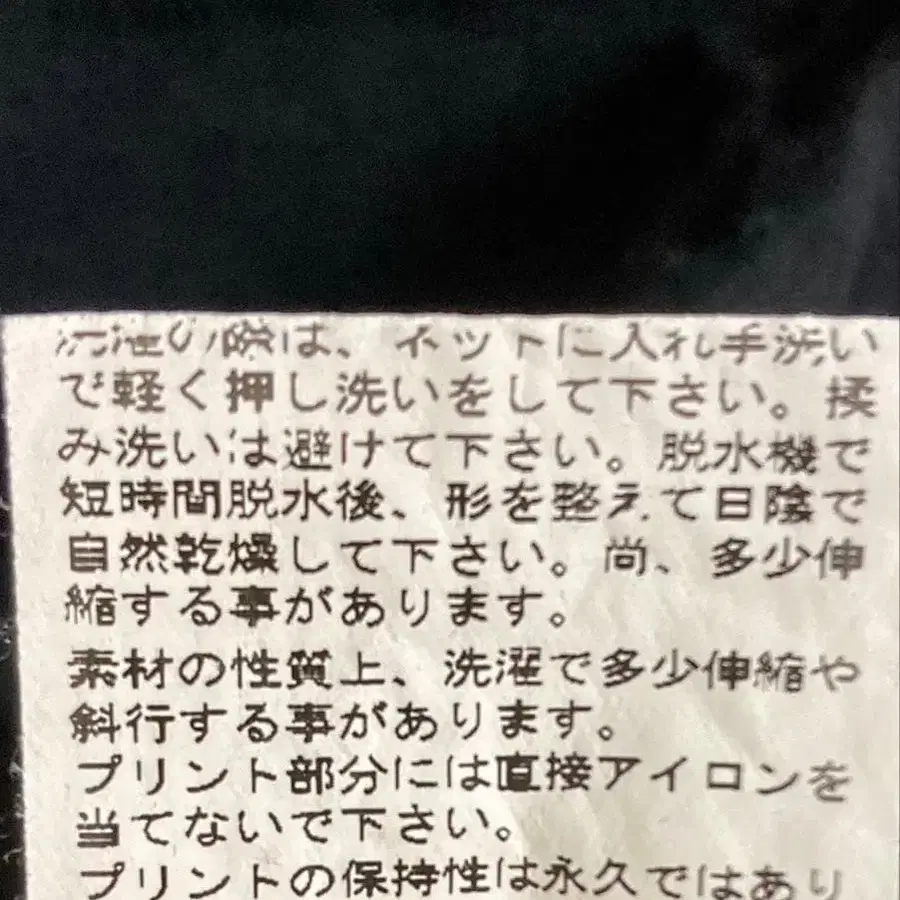 洗濯の際は、ネットに入れ手洗い
で軽く押し洗いをして下さい。揉
み洗いは避けて下さい。脱水機で
短時間脱水後、形を整えて日陰で
自然乾燥して下さい。尚、多少伸
縮する事があります。
素材の性質上、洗濯で多少伸縮や
斜行する事があります。
プリント部分には直接アイロンを
当てないで下さい。
プリントの保持性は永久ではあり